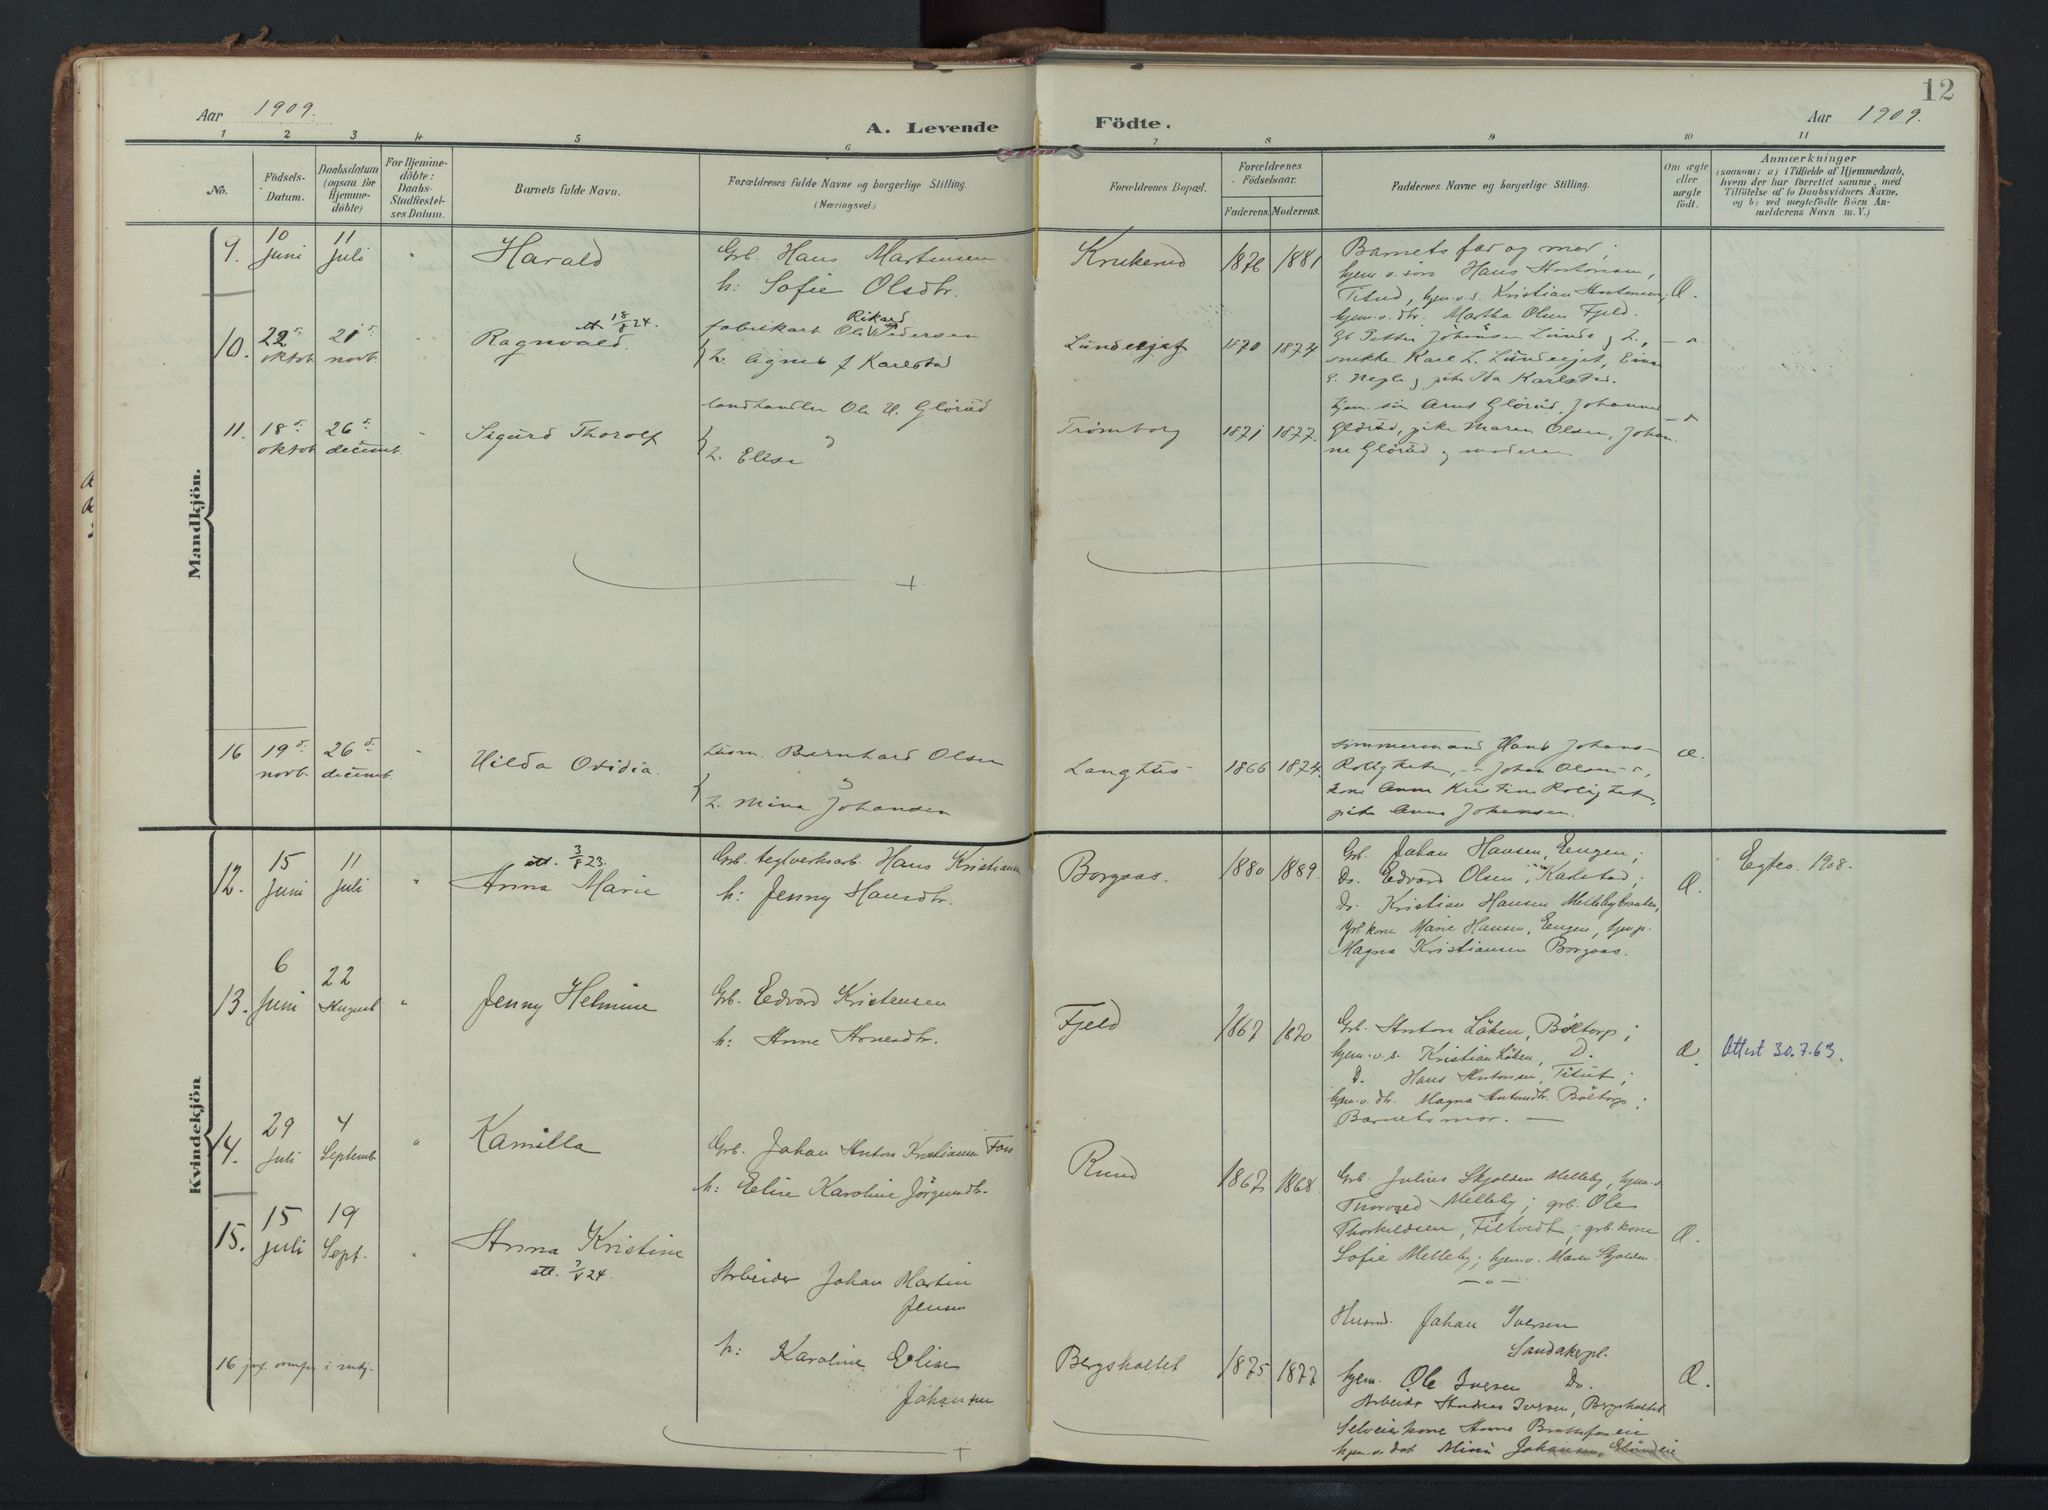 12
Aar 1909.
A. Levende Födte.
Aar 1909.
1 2 3 4 5 6 7 8 9 10 11
No.
Födsels-
Datum.
Daabsdatum
(ogsaa for
Hjemme-
döbte)
For Hjemme-
döbte:
Daabs-
Stadfæstel-
ses Datum.
Barnets fulde Navn.
Forældrenes fulde Navne og borgerlige Stilling.
(Næringsvei.)
Forældrenes Bopæl.
Forældrenes
Födselsaar.
Faderens. Moderens.
Faddernes Navne og borgerlige Stilling.
Om ægte
eller
uægte
födt.
Anmærkninger
(saasom: a) i Tilfælde af Hjemmedaab,
hvem der har forrettet samme, med
Tilföielse af to Daabsvidners Navne,
og b) ved uægtefödte Börn An-
melderens Navn m. V.)
Mandkjön.
9. 10 Juni 11 Juli " Harald
Grb. Hans Martinsen
h: Sofie Olsdtr.
Krukerud 1876 1881
Barnets far og mor;
hjem.v. søn Hans Antonsen,
Titud, hjem.v.s. Kristian Antonsen,
hjem.v.dtr. Martha Olsen Fjeld.
Æ.
10. 22 oktob. 21 novb. Ragnvald.
att 18/8 24.
fabrikarb. Ole Rikard Pedersen
h. Agnes f Karlstad
1870 1874
Gb Petter Johansen Lunde
Karl L. Lundejet, Einar
pike Ida Karlstad.
11. 18 oktob. 26 decemb. " Sigurd Thorolf
landhandler Ole H. Glörud
h. Elise
Trömborg 1871 1877.
hjem. søn Arne Glörud, Johanne
Glörud, pike Maren Olsen, Johan-
ne Glörud og moderen
16 19 novb. 26 decemb. " Hilda Ovidia.
Bernhard Olsen
h. Mina Johansen
Langhus 1866 1874.
tömmermand Hans Johans-
Rolighet, Johan Olsen
kone Anne Kristine Rolighet,
pike Anna Johansen.
Æ.
Kvindekjön
12. 15 Juni 11 Juli "
att. 3/8 23.
Anna Marie
Grb. teglverksarb. Hans Kristiansen
h: Jenny Hansdtr.
Borgaas. 1880 1889.
Grb. Johan Hansen, Eengen;
Do. Edvard Olsen, Karlstad;
Do. Kristian Hansen Mellebybraaten,
Grb kone Marie Hansen, Eengen, hjemp.
Magna Kristiansen Borgaas.
Æ.
Egtev. 1908.
13. 6 Juni 22 August " Jenny Helmine
Grb. Edvard Kristensen
h: Anne
Fjeld 1867 1870
Grb. Anton Löken, Böltorp;
hjem.v.s. Kristian Löken, D.
D. Hans Antonsen, Titut;
hjem.v.dtr. Magna Antonsdtr. Böltorp;
Barnets mor. —
Æ.
Attest 30.7.63.
14. 29 Juli 4 Septemb. " Kamilla
Grb. Johan Anton Kristiansen Foss
h: Elise Karoline Jörgensdtr.
Ruud 1867 1868.
Grb. Julius Skjolden Melleby, hjem.v
Thorvald Melleby; grb. Ole
Thorkildsen, Filtvedt; grb kone
Sofie Melleby; hjem.v. Maren Skjolden.
— " —
Æ.
15. 15 juli 19 Sept. " Anna Kristine
att. 7/8 24.
Arbeider Johan Martin
Jensen
h: Karoline Elise
Johansen
Bergsholtet 1875 1877
Husmd. Johan Iversen
Sandakerpl.
hjem. Ole Iversen Do.
Arbeider Andreas Iversen, Bergsholtet
Selveierkone Anne
hjem.v.dat. Mina Johansen,
Æ.
16